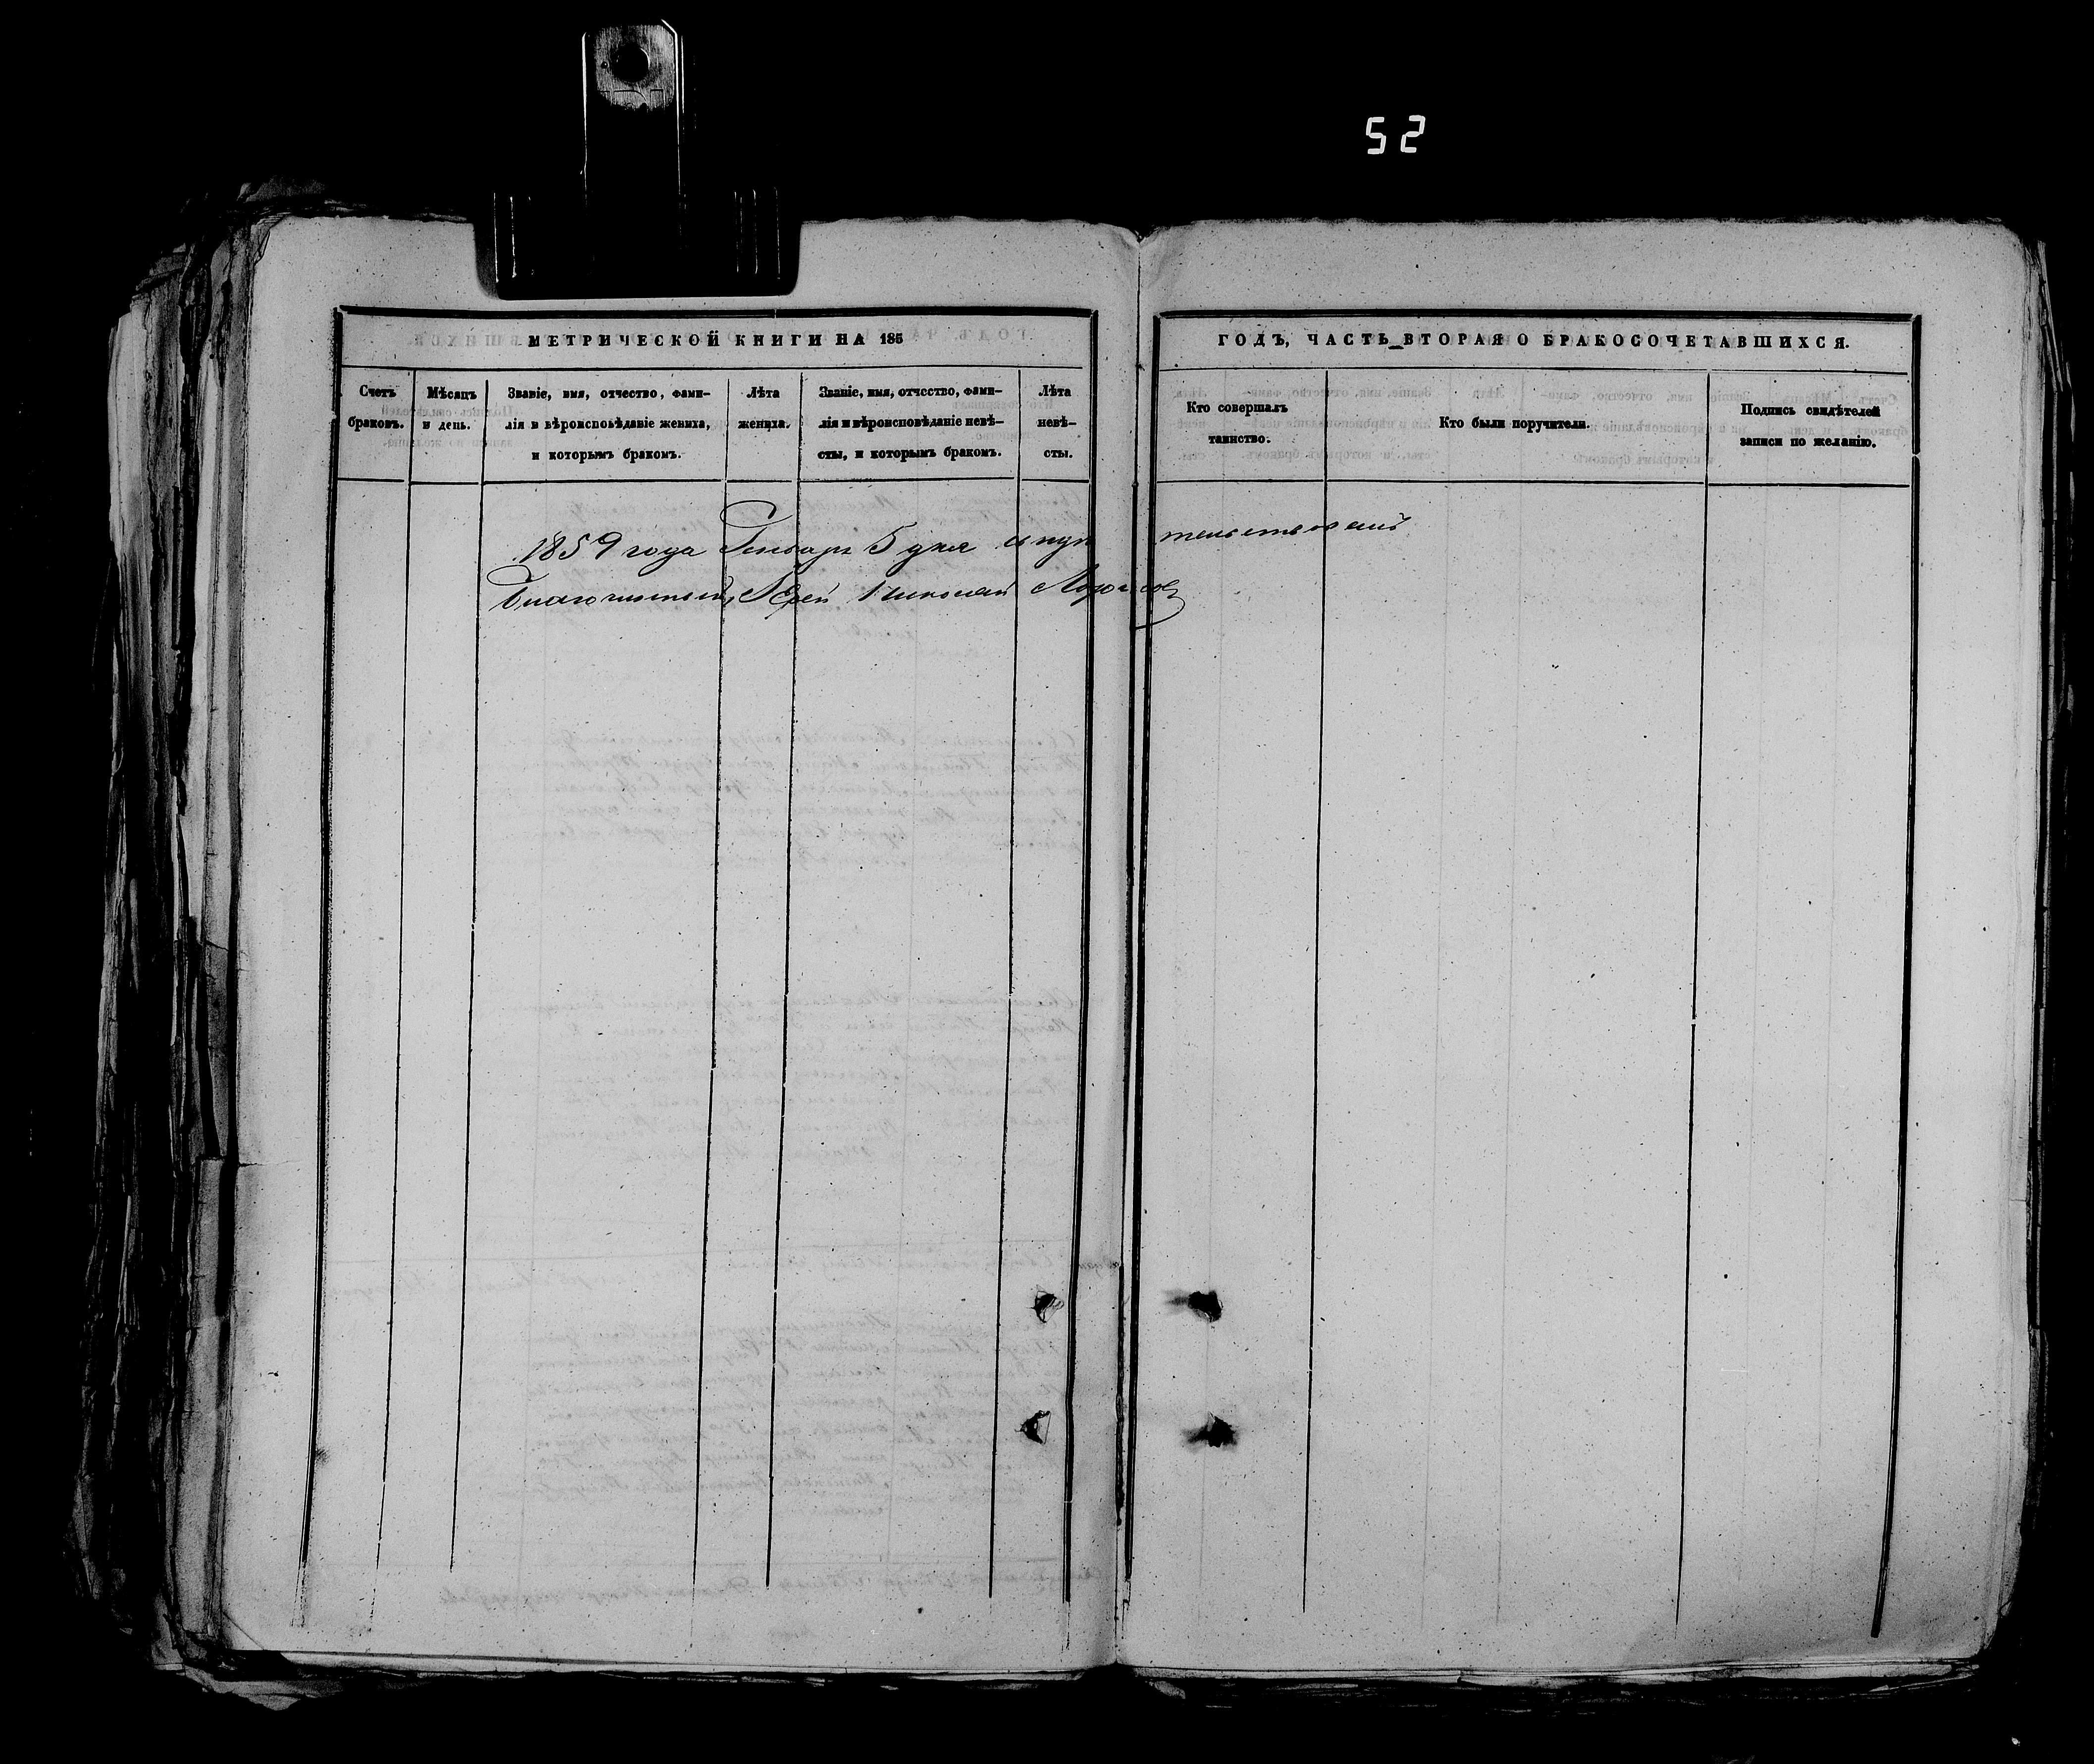 52
МЕТРИЧЕСКОЙ КНИГИ НА 185
ГОДЪ, ЧАСТЬ ВТОРАЯ О БРАКОСОЧЕТАВШИХСЯ.
Счетъ
браковъ.
Мѣсяцъ
и день.
Званіе, имя, отчество, фами-
лія и вѣроисповѣданіе жениха,
и которымъ бракомъ.
Лѣта
жениха.
Званіе, имя, отчество, фами-
лія и вѣроисповѣданіе невѣ-
сты, и которымъ бракомъ.
Лѣта
невѣ-
сты.
Кто совершалъ
таинство.
Кто были поручители.
Подпись свидѣтелей
записи по желанію.
1859 года Генваря 5 дня
Благочинный Іерей Николай